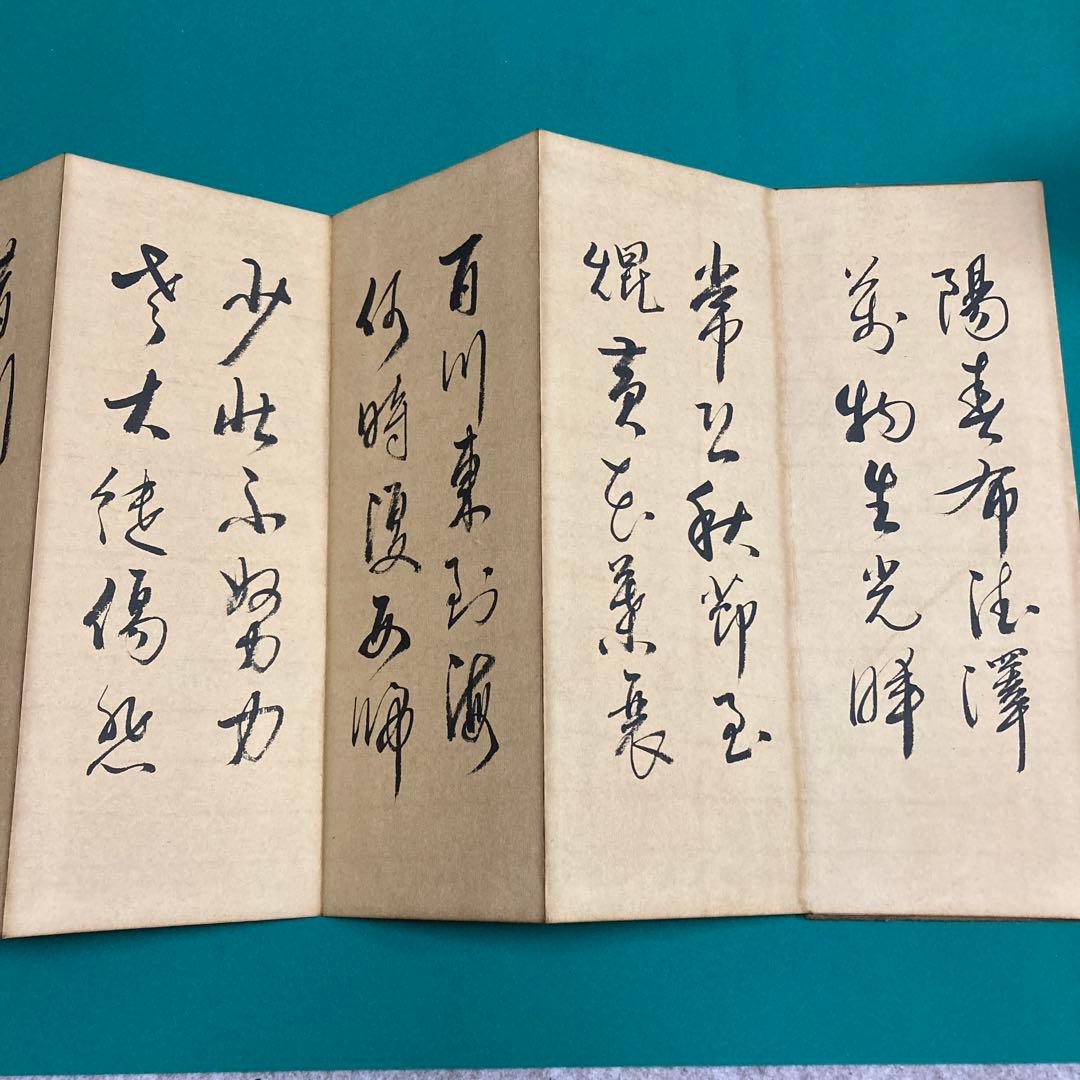 陽春布德澤
萬物生光暉
常恐秋節至
焜黃華葉衰
百川東到海
何時復西歸
少壯不努力
老大徒傷悲